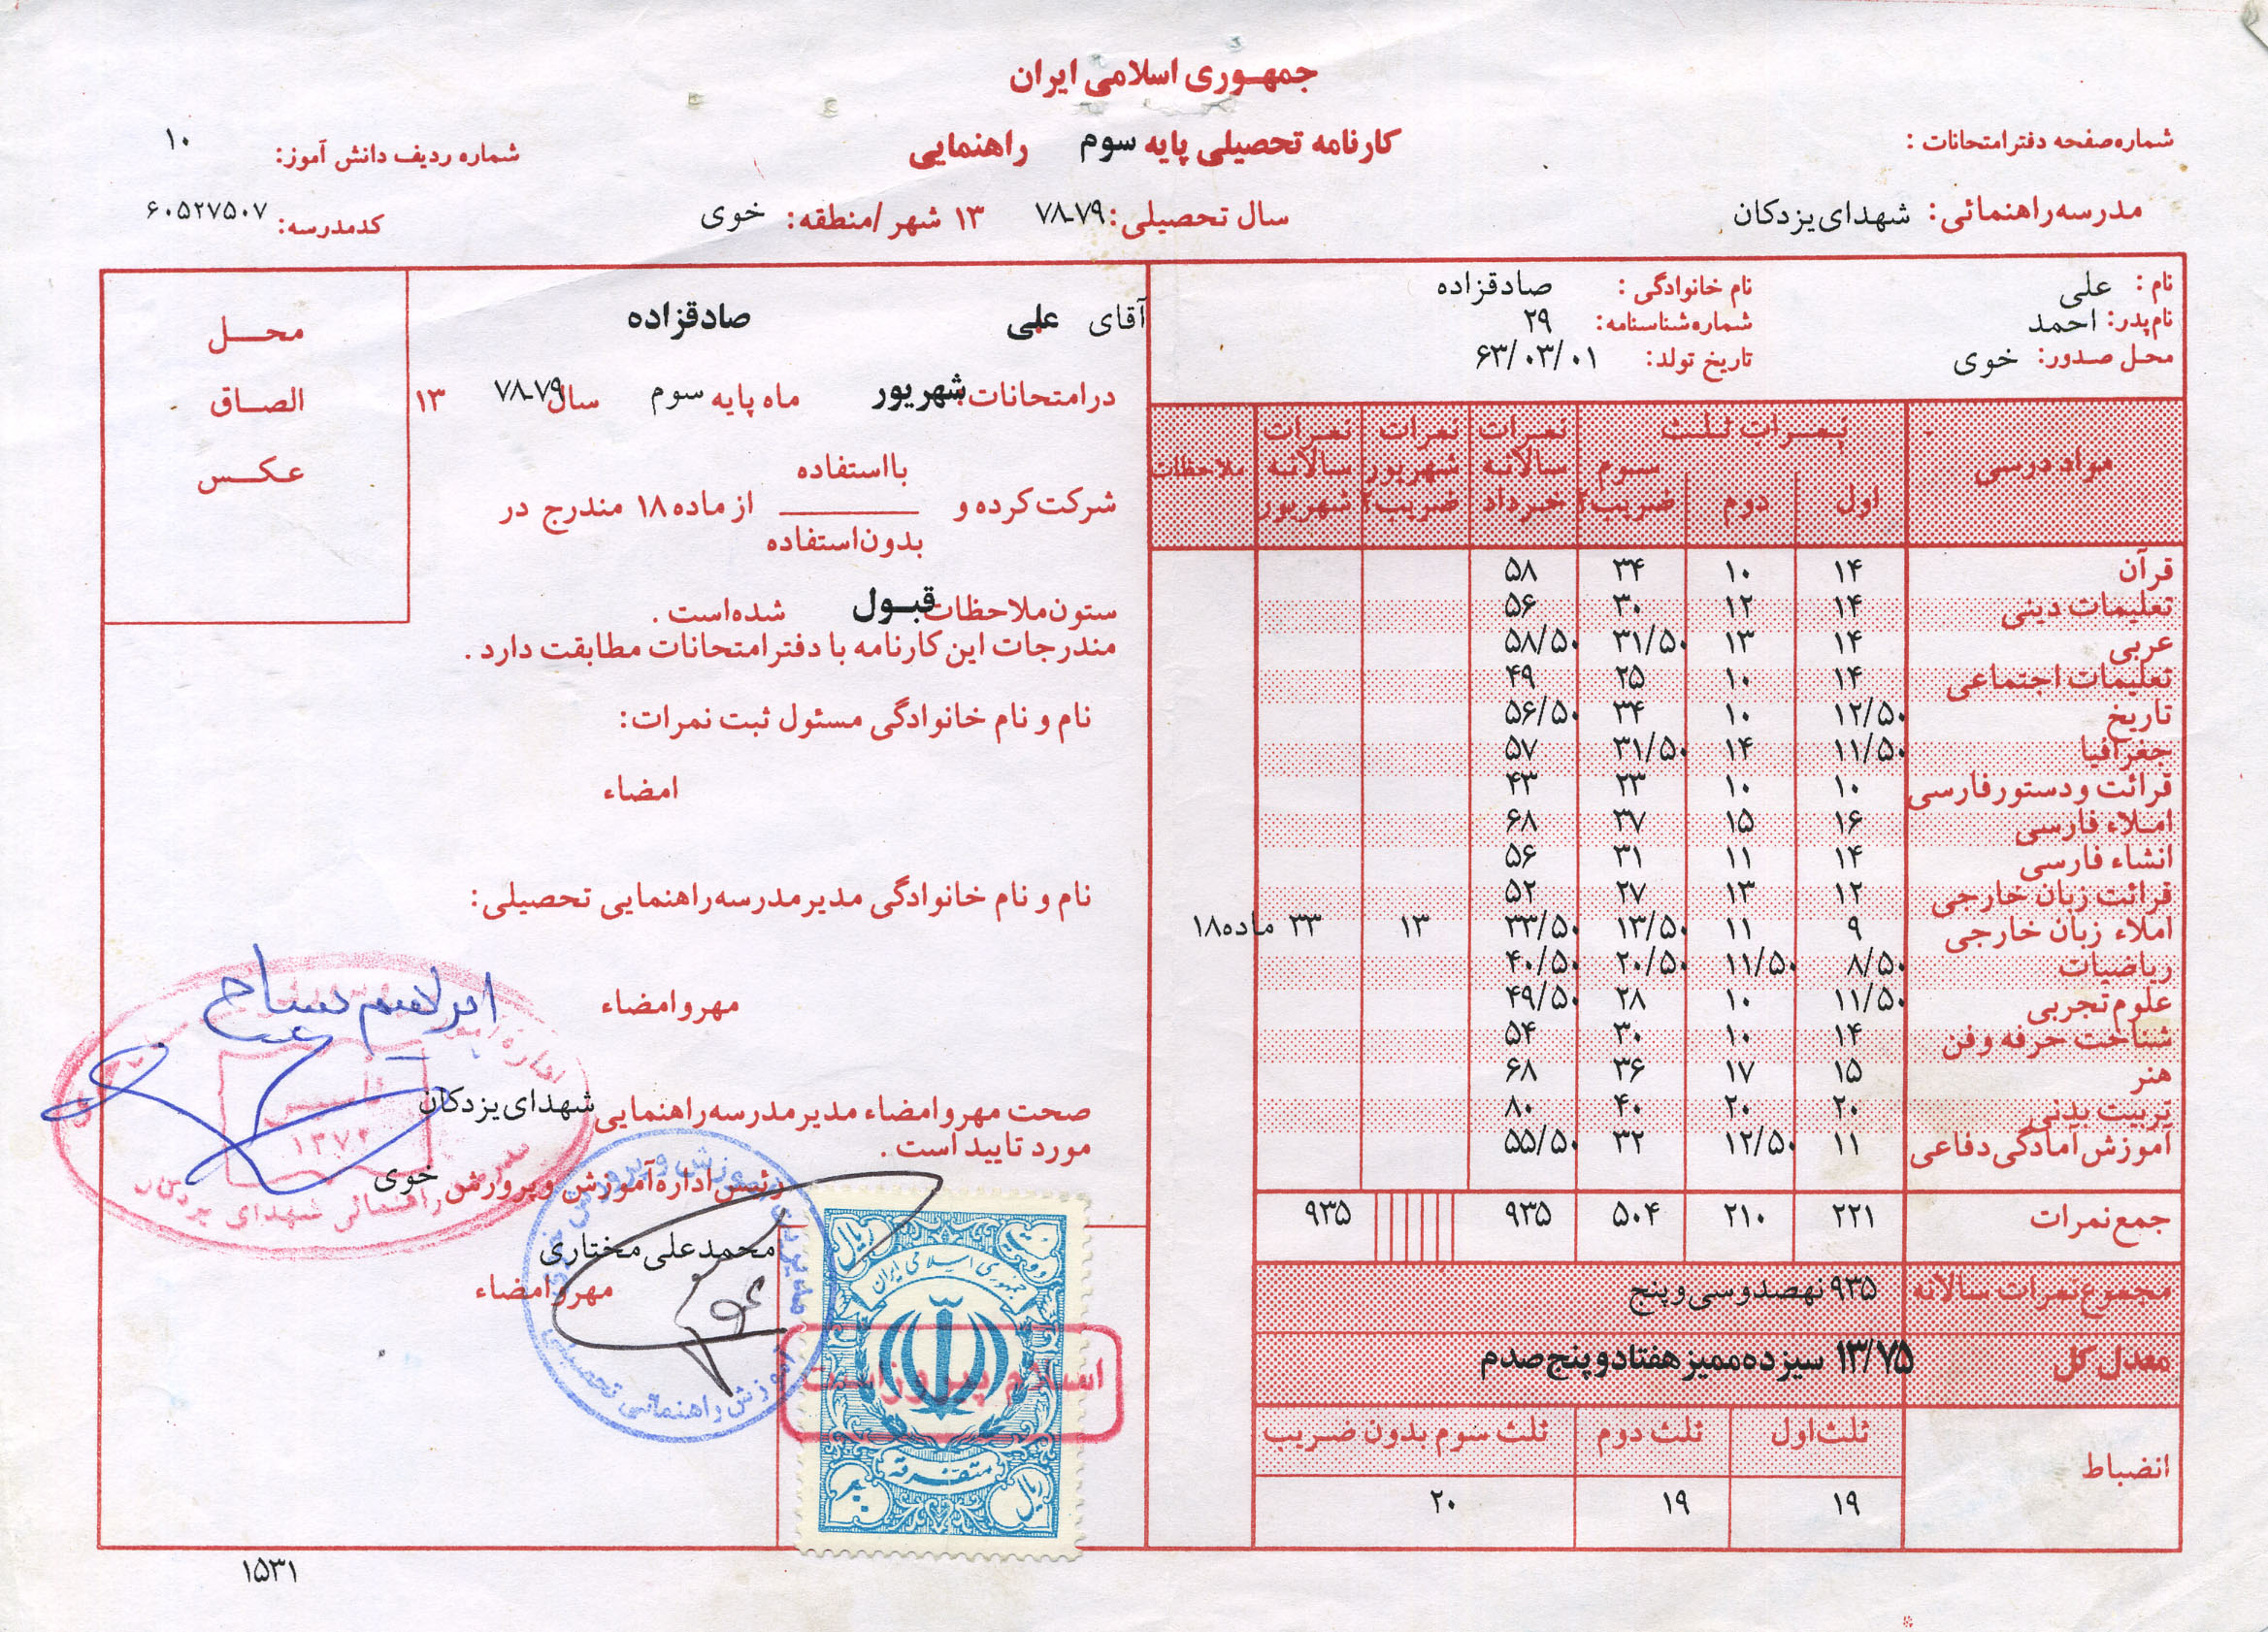 جمهوری اسلامی ایران
شماره صفحه دفتر امتحانات :
کارنامه تحصیلی پایه سوم راهنمایی
شماره ردیف دانش آموز: ۱۰
مدرسه راهنمائی: شهدای یزدکان
سال تحصیلی: ۷۸-۷۹ ۱۳ شهر / منطقه: خوی
کد مدرسه: ۶۰۵۲۷۵۰۷
نام: علی نام خانوادگی: صادقزاده
نام پدر: احمد شماره شناسنامه: ۲۹
محل صدور: خوی تاریخ تولد: ۶۳/۰۳/۰۱
مواد درسی نمرات ثلث اول دوم سوم ضریب۲ نمرات سالانه خرداد نمرات شهریور ضریب۲ نمرات سالانه شهریور ملاحظات
قرآن ۱۴ ۱۰ ۳۴ ۵۸
تعلیمات دینی ۱۴ ۱۲ ۳۰ ۵۶
عربی ۱۴ ۱۳ ۳۱/۵۰ ۵۸/۵۰
تعلیمات اجتماعی ۱۴ ۱۰ ۲۵ ۴۹
تاریخ ۱۲/۵۰ ۱۰ ۳۴ ۵۶/۵۰
جغرافیا ۱۱/۵۰ ۱۴ ۳۱/۵۰ ۵۷
قرائت و دستور فارسی ۱۰ ۱۰ ۲۳ ۴۳
املاء فارسی ۱۶ ۱۵ ۳۷ ۶۸
انشاء فارسی ۱۴ ۱۱ ۳۱ ۵۶
قرائت زبان خارجی ۱۲ ۱۳ ۲۷ ۵۲
املاء زبان خارجی ۹ ۱۱ ۱۳/۵۰ ۳۳/۵۰ ۱۳ ۳۳ ماده ۱۸
ریاضیات ۸/۵۰ ۱۱/۵۰ ۲۰/۵۰ ۴۰/۵۰
علوم تجربی ۱۱/۵۰ ۱۰ ۲۸ ۴۹/۵۰
شناخت حرفه و فن ۱۴ ۱۰ ۳۰ ۵۴
هنر ۱۵ ۱۷ ۳۶ ۶۸
تربیت بدنی ۲۰ ۲۰ ۴۰ ۸۰
آموزش آمادگی دفاعی ۱۱ ۱۲/۵۰ ۳۲ ۵۵/۵۰
جمع نمرات ۲۲۱ ۲۱۰ ۵۰۴ ۹۳۵ ۹۳۵
مجموع نمرات سالانه ۹۳۵ نهصدوسی و پنج
معدل کل ۱۳/۷۵ سیزده ممیز هفتادو پنج صدم
انضباط ثلث اول ثلث دوم ثلث سوم بدون ضریب
۱۹ ۱۹ ۲۰
آقای علی صادقزاده
در امتحانات: شهریور ماه پایه سوم سال ۷۸-۷۹ ۱۳
با استفاده
شرکت کرده و از ماده ۱۸ مندرج در
بدون استفاده
ستون ملاحظات قبول شده است .
مندرجات این کارنامه با دفتر امتحانات مطابقت دارد .
نام و نام خانوادگی مسئول ثبت نمرات:
امضاء
نام و نام خانوادگی مدیر مدرسه راهنمایی تحصیلی:
مهر و امضاء
صحت مهر و امضاء مدیر مدرسه راهنمایی شهدای یزدکان
مورد تایید است .
رئیس اداره آموزش و پرورش خوی
محمدعلی مختاری
مهر و امضاء
محل
الصاق
عکس
ابراهیم
تاسیس
۱۳۷۲
مدرسه راهنمائی شهدای یزدکان
جمهوری اسلامی ایران
ریال
متفرقه
ریال
اسلام پیروز است
۱۵۳۱